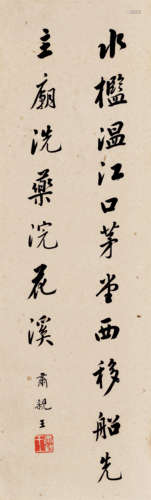 水檻温江口茅堂西移船先
主廟洗藥浣花溪
肅親王